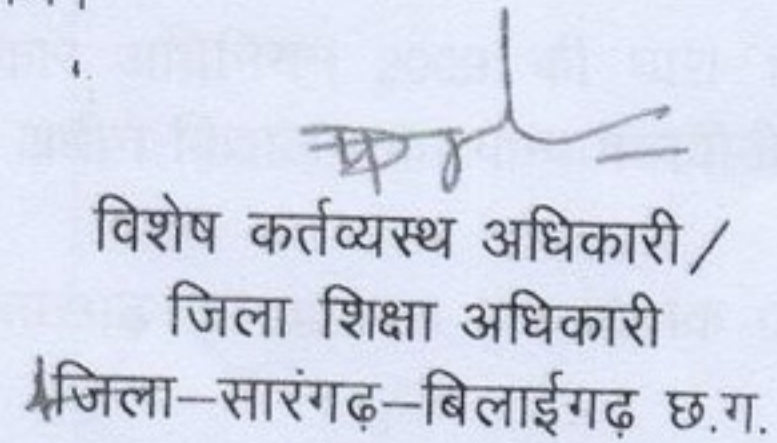 विशेष कर्तव्यस्थ अधिकारी/
जिला शिक्षा अधिकारी
जिला–सारंगढ़–बिलाईगढ़ छ.ग.